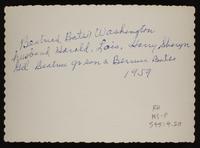 Beatrice Bates Washington
husband Harold, Lois, Harry Sharyn
Beatrice grson & Bernice Bates
1959
RH
MS-P
545:4.20